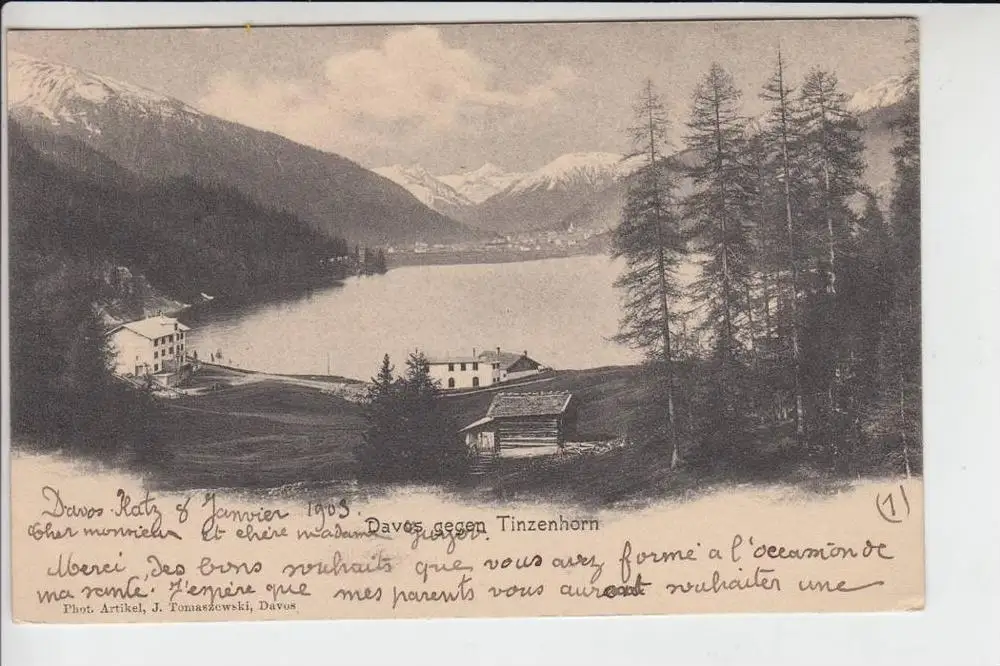 Davos-Platz 8 Janvier 1903.
Cher monsieur et chère madame
Davos gegen Tinzenhorn
(1)
Merci, des bons souhaits que vous avez formé à l'occasion de
ma santé. J'espère que mes parents vous auront souhaiter une
Phot. Artikel, J. Tomaszewski, Davos